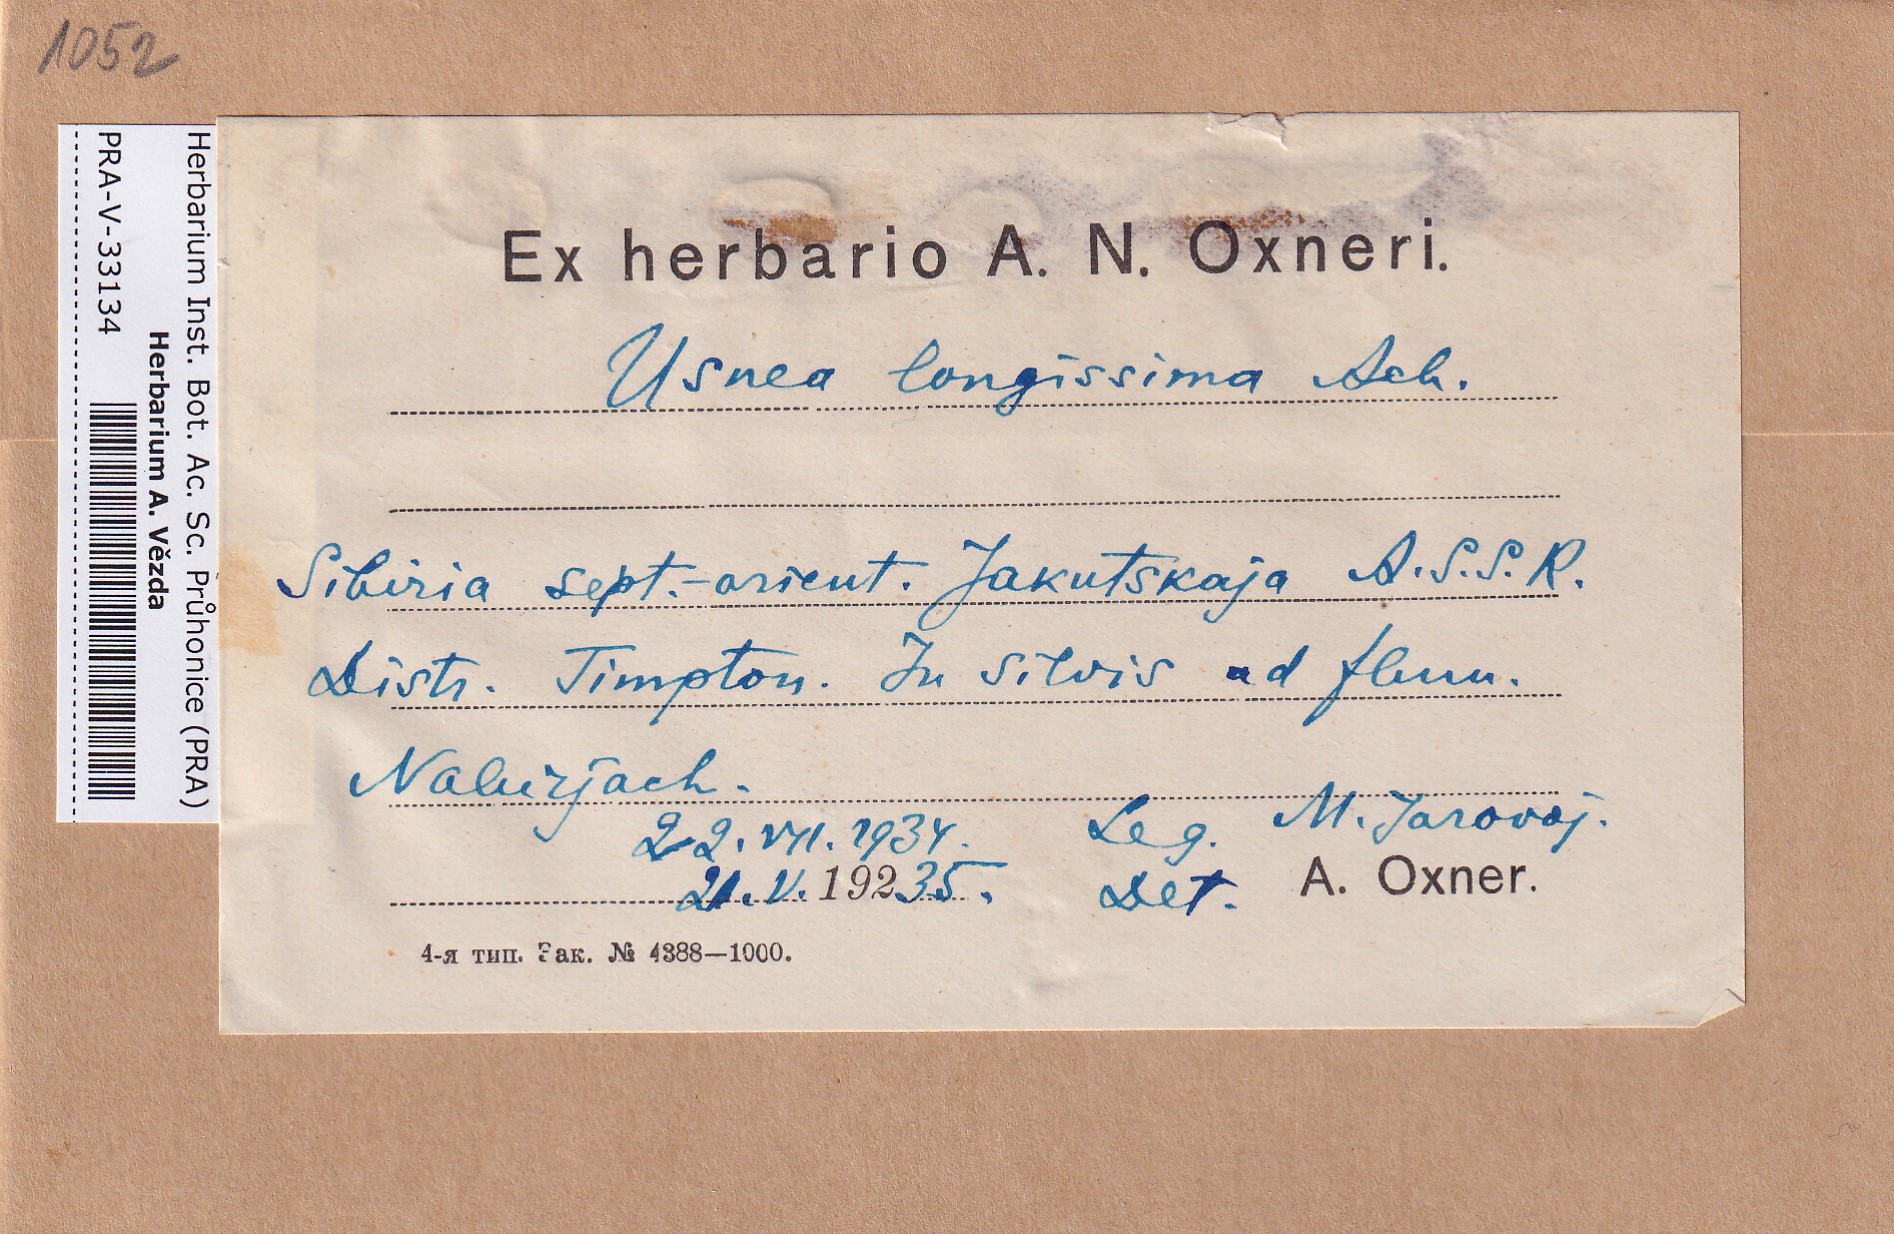 1052
Herbarium Inst. Bot. Ac. Sc. Průhonice (PRA)
Herbarium A. Vězda
PRA-V-33134
Ex herbario A. N. Oxneri.
Usnea longissima Ach.
Sibiria sept.-orient. Jakutskaja A.S.S.R.
Distr. Timpton. In silvis ad flum.
22.VII.1934. Leg. M. Jarovoj.
21.V.19235. Det. A. Oxner.
4-я тип. Зак. № 4388—1000.